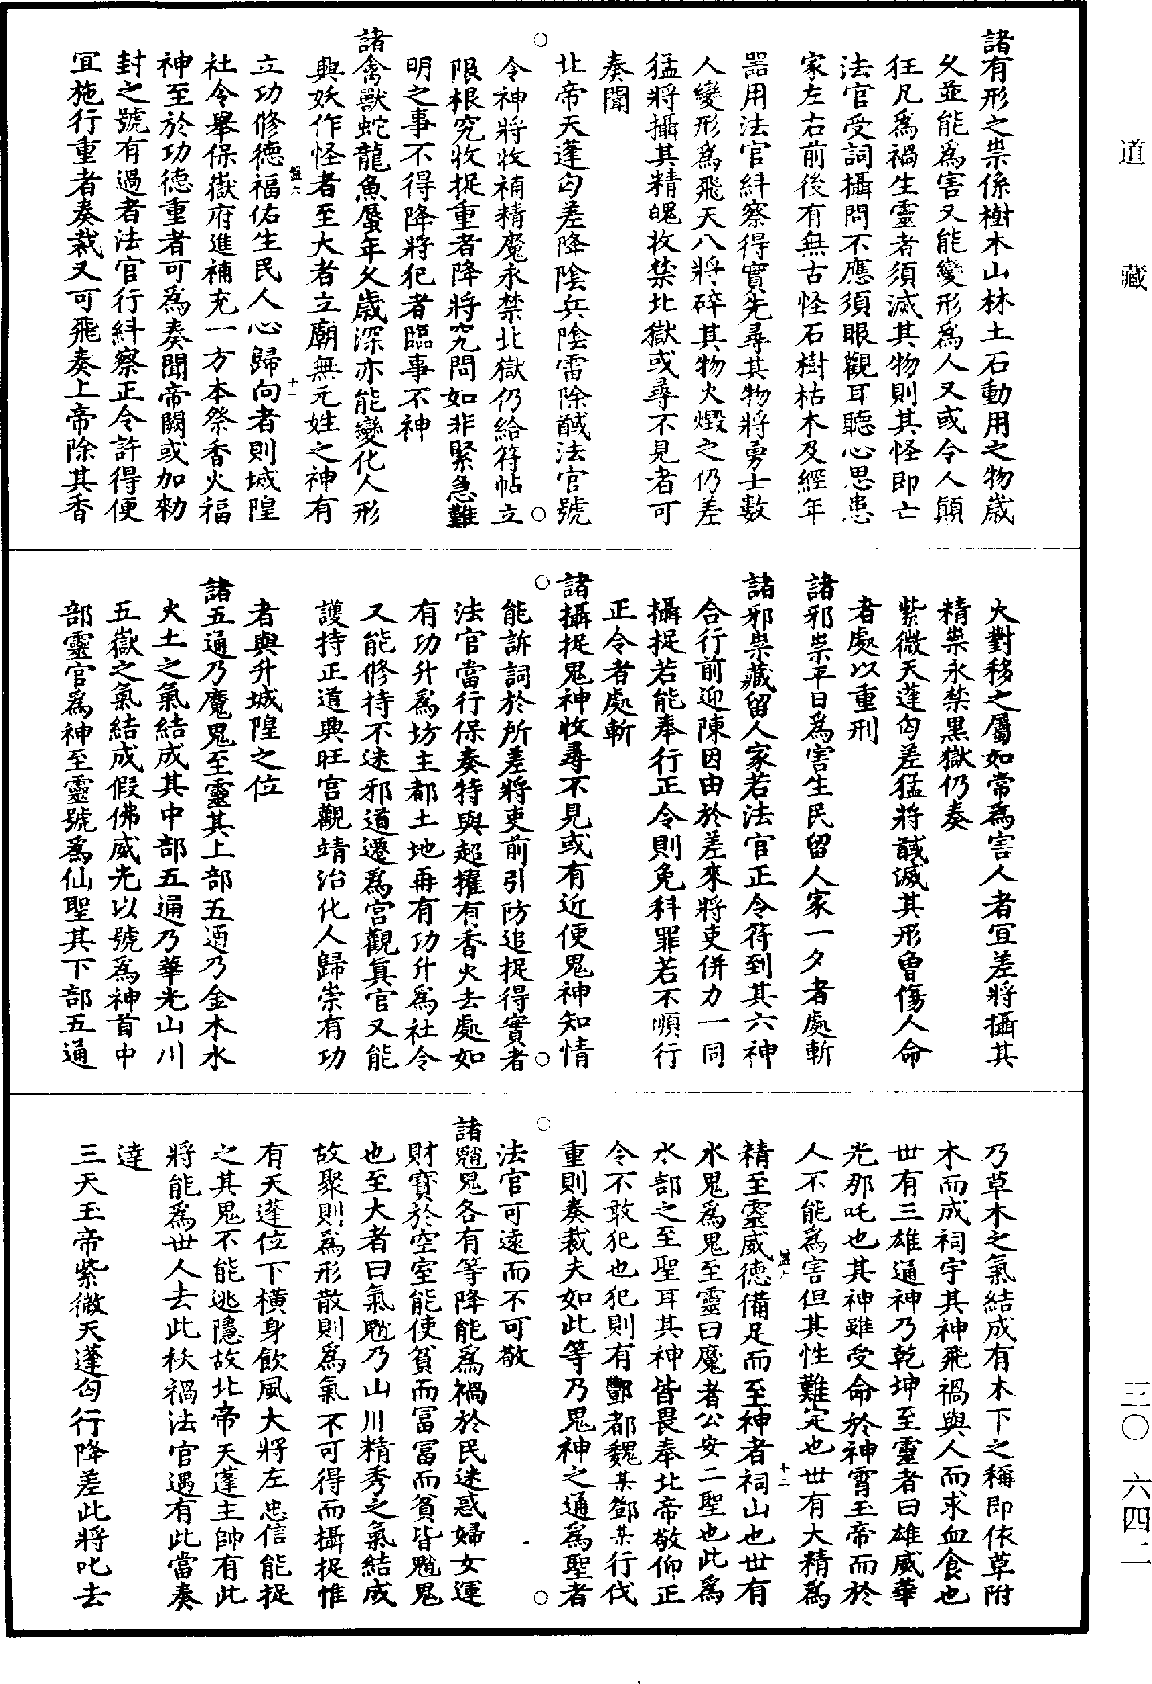 道藏
諸有形之祟係樹木山林土石動用之物歲
久並能為害又能變形為人又或令人顛
狂凡為禍生靈者須滅其物則其怪即亡
法官受詞攝問不應須眼觀耳聽心思患
家左右前後有無古怪石樹枯木及經年
器用法官糾察得實先尋其物將勇士數
人變形為飛天八將碎其物火煅之仍差
猛將攝其精魄收禁北獄或尋不見者可
奏聞
北帝天蓬勾差降陰兵陰雷除馘法官號
令神將收補精魔永禁北獄仍給符帖立
限根究收捉重者降將究問如非緊急難
明之事不得降將犯者臨事不神
諸禽獸蛇龍魚蜃年久歲深亦能變化人形
興妖作怪者至大者立廟無元姓之神有
立功修德福佑生民人心歸向者則城隍
社令舉保嶽府進補充一方本祭香火福
神至於功德重者可為奏聞帝闕或加勑
封之號有過者法官行糾察正令許得便
宜施行重者奏裁又可飛奏上帝除其香
火對移之屬如常為害人者宜差將攝其
精祟永禁黑獄仍奏
紫微天蓬勾差猛將馘滅其形曾傷人命
者處以重刑
諸邪祟平日為害生民留人家一夕者處斬
諸邪祟藏留人家若法官正令符到其六神
合行前迎陳因由於差來將吏併力一同
攝捉若能奉行正令則免科罪若不順行
正令者處斬
諸攝捉鬼神收尋不見或有近便鬼神知情
能訴詞於所差將吏前引防追捉得實者
法官當行保奏特與超擢有香火去處如
有功升為坊主都土地再有功升為社令
又能修持不迷邪道遷為宮觀真官又能
護持正道興旺宮觀靖治化人歸崇有功
者與升城隍之位
諸五通乃魔鬼至靈其上部五通乃金木水
火土之氣結成其中部五通乃華光山川
五嶽之氣結成假佛威光以號為神首中
部靈官為神至靈號為仙聖其下部五通
乃草木之氣結成有木下之稱即依草附
木而成祠宇其神飛禍與人而求血食也
世有三雄通神乃乾坤至靈者曰雄威華
光那吒也其神雖受命於神霄玉帝而於
人不能為害但其性難定也世有大精為
精至靈威德備足而至神者祠山也世有
水鬼為鬼至靈曰魔者公安二聖也此為
水部之至聖耳其神皆畏奉北帝敬仰正
令不敢犯也犯則有酆都魏某鄧某行伐
重則奏裁夫如此等乃鬼神之通為聖者
法官可遠而不可敬
諸魈鬼各有等降能為禍於民迷惑婦女運
財寶於空室能使貧而富富而貧皆魈鬼
也至大者曰氣魈乃山川精秀之氣結成
故聚則為形散則為氣不可得而攝捉惟
有天蓬位下橫身飲風大將左忠信能捉
之其鬼不能逃隱故北帝天蓬主帥有此
將能為世人去此秋禍法官遇有此當奏
達
三天玉帝紫微天蓬勾行降差此將叱去
三〇 六四二